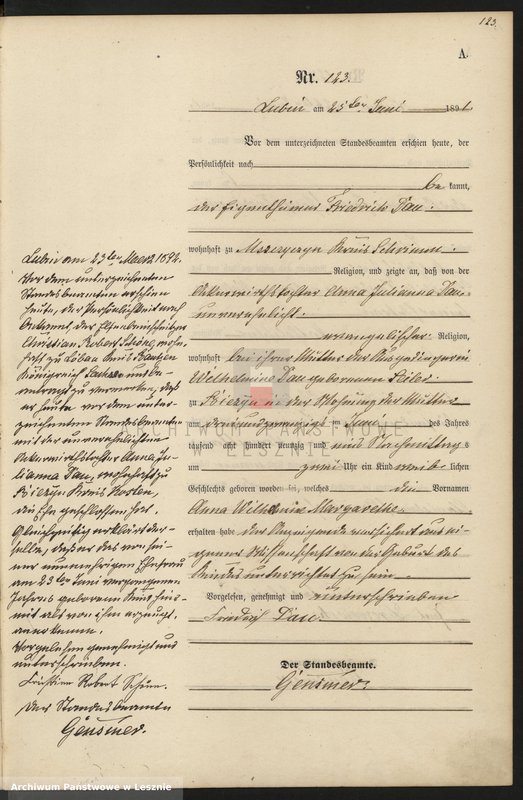 123.
A.
Nr. 123.
Lubin am 25ten Juni 1891.
Vor dem unterzeichneten Standesbeamten erschien heute, der
Persönlichkeit nach
be kannt,
der Eigenthümer Friedrich Dau
wohnhaft zu Mszczyczyn Kreis Schrimm
Religion, und zeigte an, daß von der
Ackerwirthstochter Anna Julianna Dau
unverehelicht
evangelischer Religion,
wohnhaft bei ihrer Mutter der Ausgedingerin
Wilhelmine Dau geborenen Seiler
zu Bieżyn in der Wohnung der Mutter
am dreiundzwanzigsten Juni des Jahres
tausend acht hundert neunzig und eins Nachmittags
um zwei Uhr ein Kind weib lichen
Geschlechts geboren worden sei, welches den Vornamen
Anna Wilhelmine Margarethe
erhalten habe der Anzeigende versichert aus ei-
gener Wissenschaft von der Geburt des
Kindes unterrichtet zu sein.
Vorgelesen, genehmigt und unterschrieben
Friedrich Dau
Der Standesbeamte.
Gensmer.
Lubin am 23ten Maerz 1892.
Vor dem unterzeichneten
Standesbeamten erschien
heute, der Persönlichkeit nach
bekannt, der
Christian Robert Schöne, wohn-
haft zu Löbau Kreis Bautzen
Königreich Sachsen und be-
antragt zu vermerken, daß
er heute vor dem unter-
zeichneten Standesbeamten
mit der unverehelichten
Ackerwirthstochter Anna Ju-
lianna Dau, wohnhaft zu
Bieżyn Kreis Kosten,
die Ehe geschlossen hat.
Gleichzeitig erklärt der-
selbe, daß er das von sei-
ner nunmehrigen Ehefrau
am 23ten Juni vergangenen
Jahres geborene Kind hier-
mit als von ihm erzeugt,
anerkenne.
Vorgelesen genehmigt und
unterschrieben.
Christian Robert Schöne.
Der Standesbeamte
Gensmer.
ARCHIWUM PAŃSTWOWE
W LESZNIE
Archiwum Państwowe w Lesznie